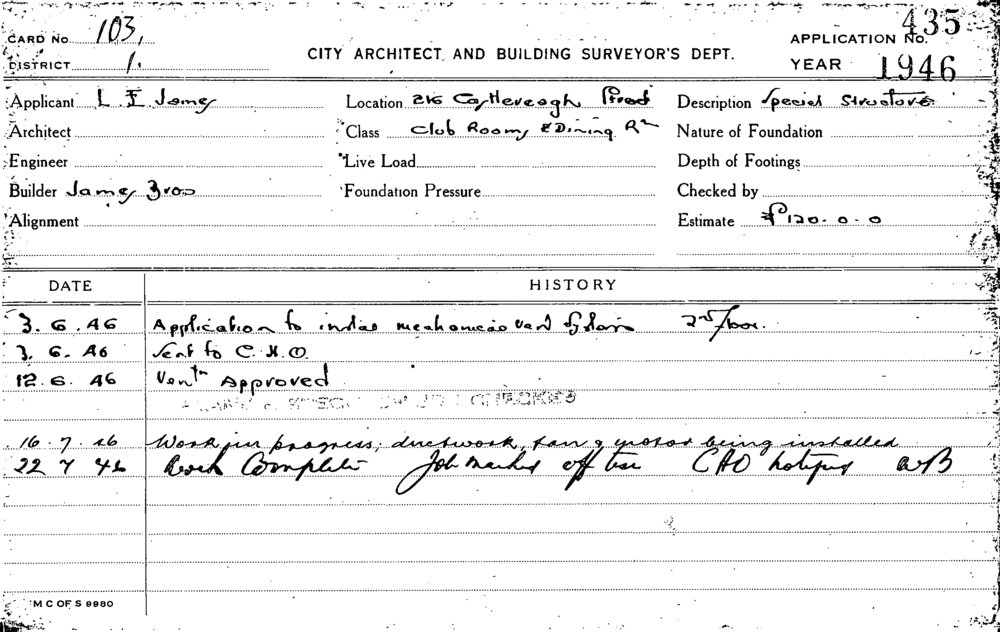 435
CARD No. 103,
APPLICATION No.
CITY ARCHITECT AND BUILDING SURVEYOR'S DEPT.
DISTRICT 1.
YEAR 1946
Applicant L E James Location 216 Castlereagh Description Special Structure
Architect Class Club Rooms & Dining Rm Nature of Foundation
Engineer Live Load Depth of Footings
Builder James Bros Foundation Pressure Checked by
Alignment Estimate £120.0.0
DATE HISTORY
3.6.46 Application to mechanical vent
3.6.46 Sent to C.H.O.
12.6.46 Ventn Approved
CHECKED
16.7.46 Work in progress; ductwork, fan & motor being installed
22 7 46 Work Complete Job marked off
M C OF S 9980